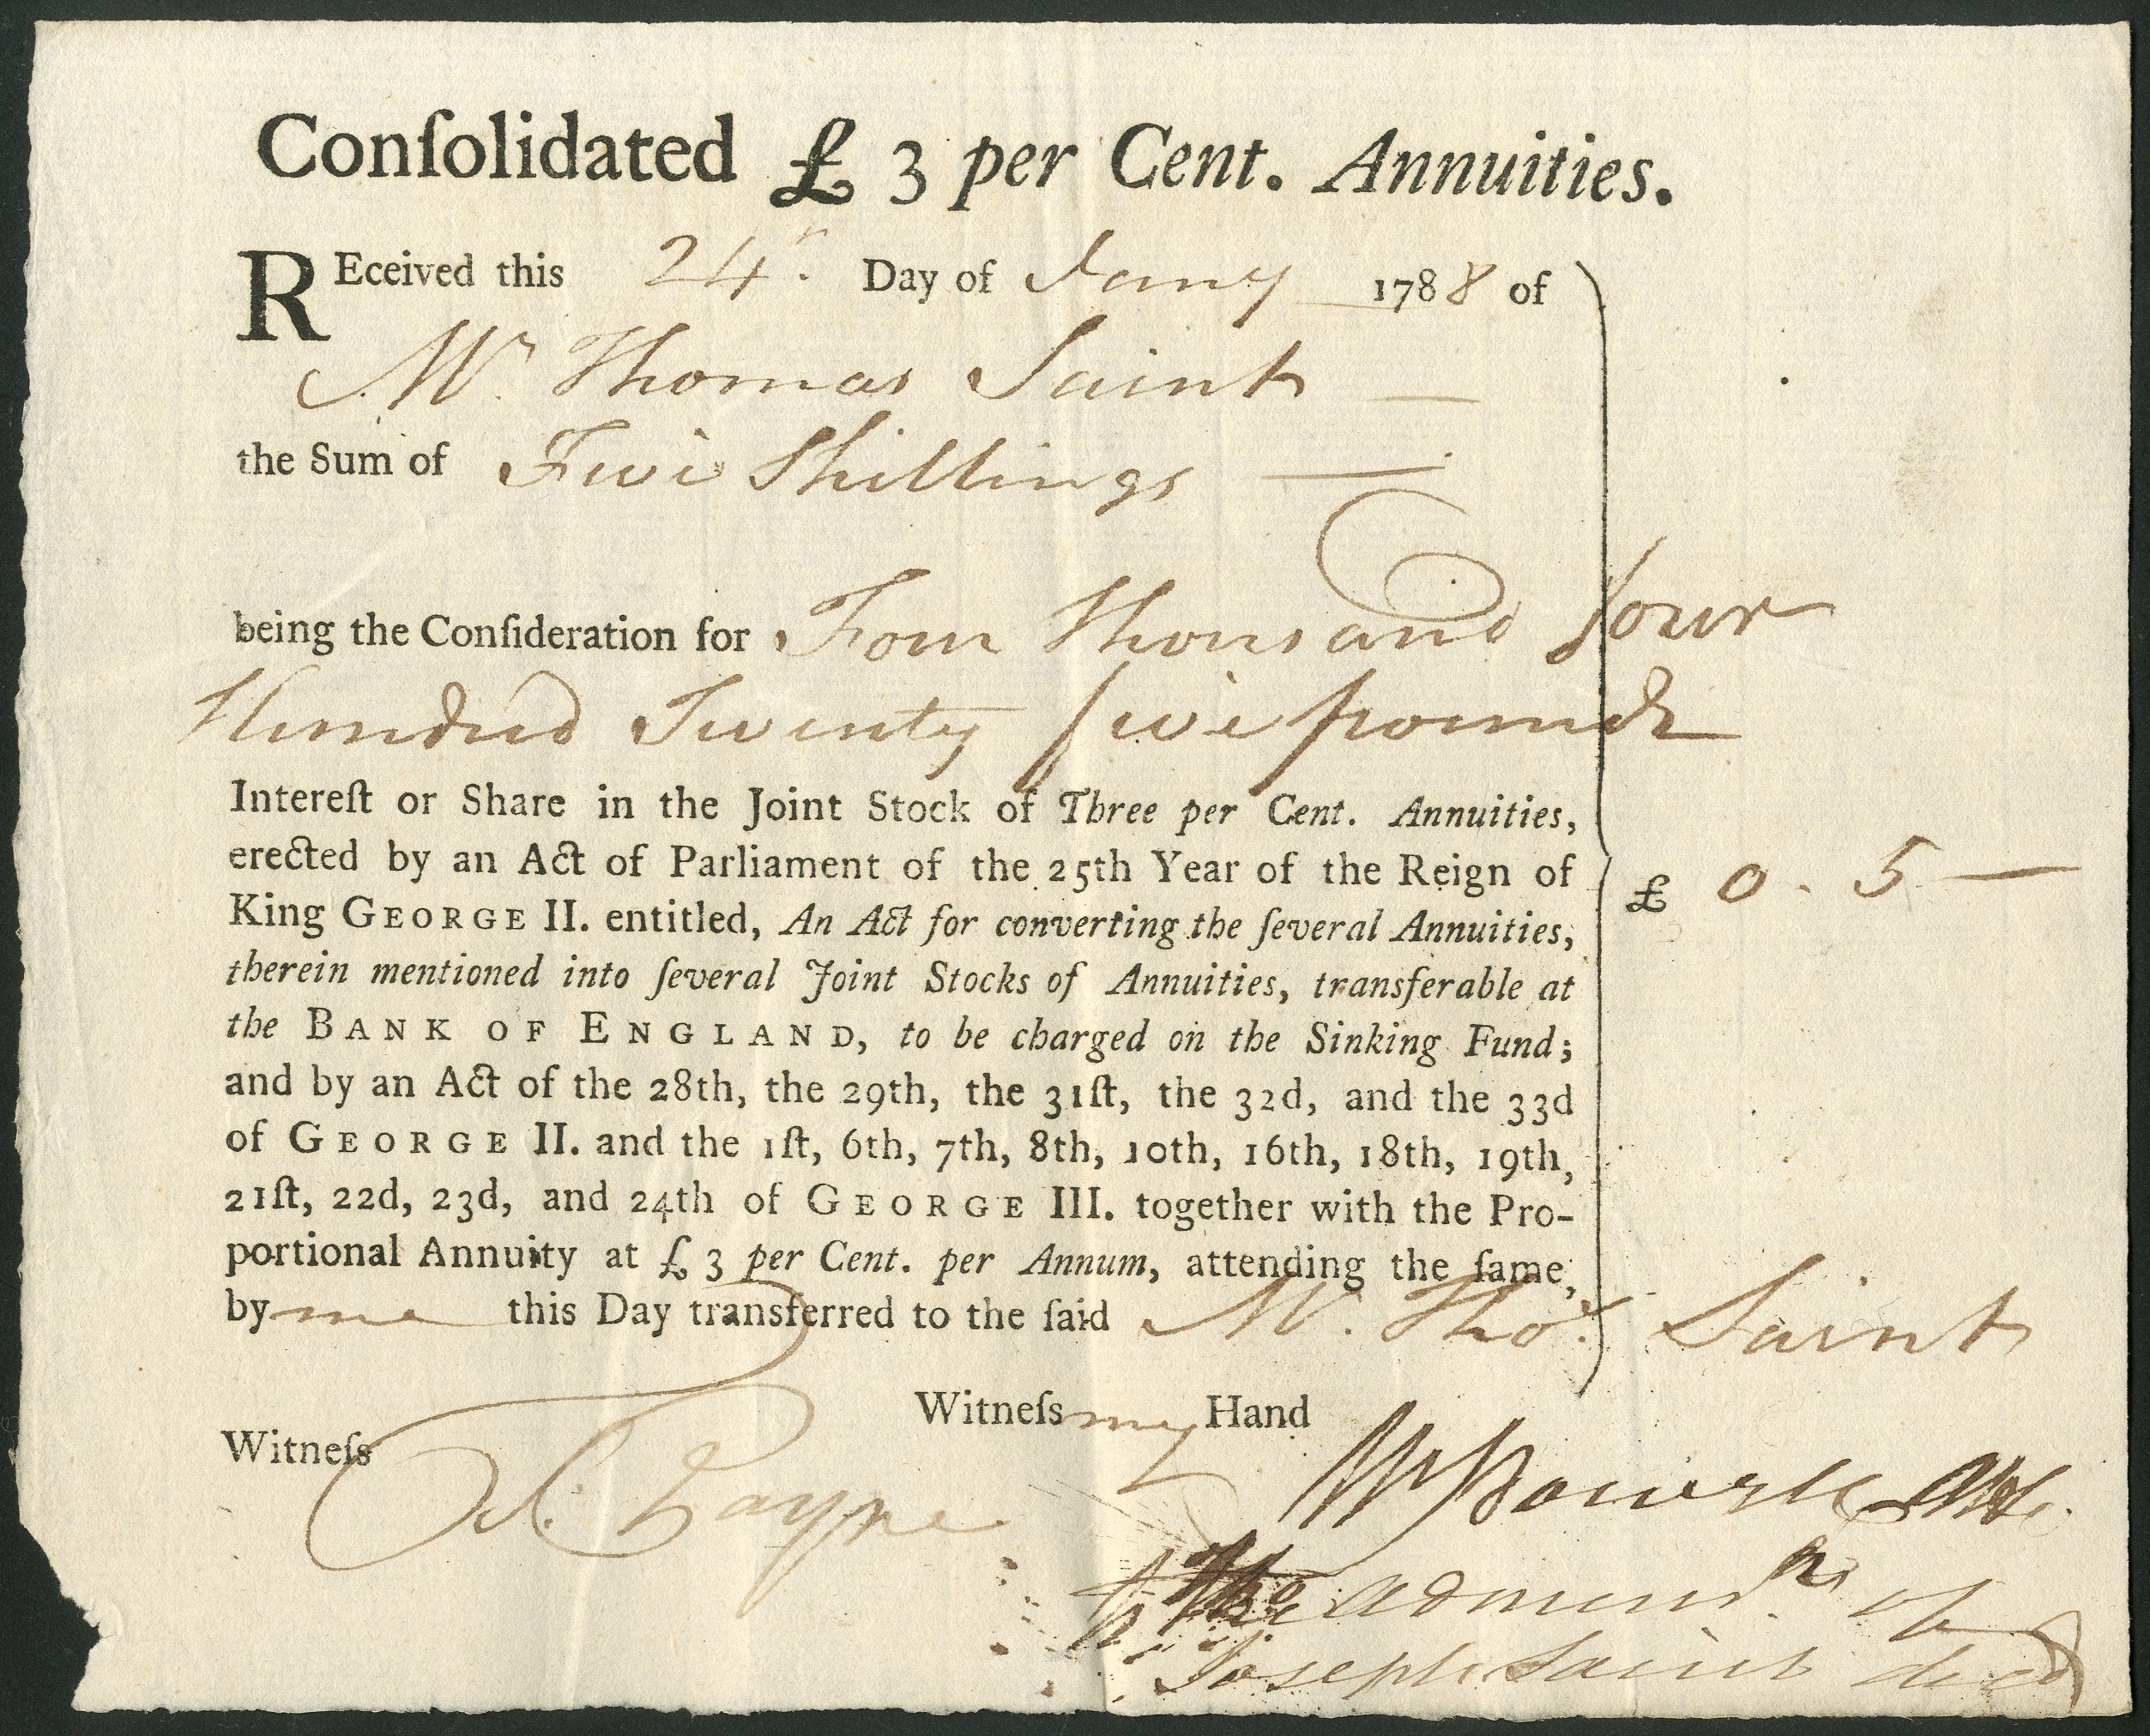 Conſolidated £ 3 per Cent. Annuities.
REceived this 24th. Day of Jany 1788 of
Mr. Thomas Saint
the Sum of Five Shillings
being the Conſideration for Four Thousand four
Hundred Twenty five pounds
Intereſt or Share in the Joint Stock of Three per Cent. Annuities,
erected by an Act of Parliament of the 25th Year of the Reign of
King GEORGE II. entitled, An Act for converting the ſeveral Annuities,
£ 0. 5 —
therein mentioned into ſeveral Joint Stocks of Annuities, transferable at
the BANK OF ENGLAND, to be charged on the Sinking Fund;
and by an Act of the 28th, the 29th, the 31ſt, the 32d, and the 33d
of GEORGE II. and the 1ſt, 6th, 7th, 8th, 10th, 16th, 18th, 19th,
21ſt, 22d, 23d, and 24th of GEORGE III. together with the Pro-
portional Annuity at £ 3 per Cent. per Annum, attending the ſame,
by me this Day transferred to the ſaid Mr. Thos. Saint
Witneſs my Hand
Witneſs
Payne
The of
Joseph Saint decd